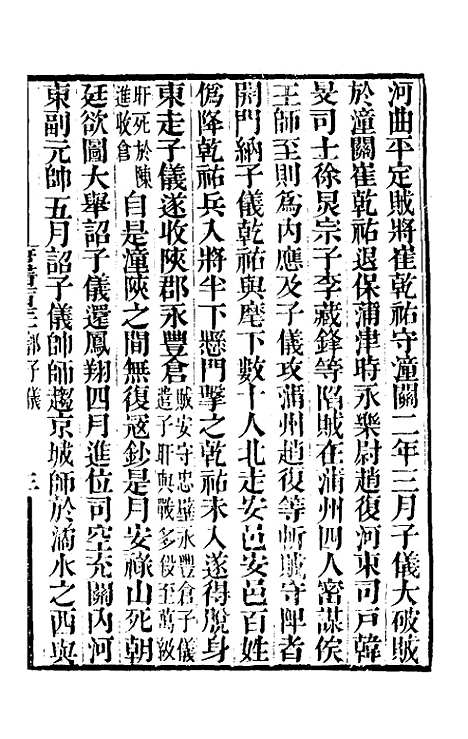 河曲平定賊將崔乾祐守潼關二年三月子儀大破賊
於潼關崔乾祐退保蒲津時永樂尉趙復河東司戶韓
旻司士徐炅宗子李藏鋒等陷賊在蒲州四人密謀俟
王師至則為內應及子儀攻蒲州趙復等斬賊守陴者
開門納子儀乾祐與麾下數十人北走安邑安邑百姓
偽降乾祐兵入將半下懸門擊之乾祐未入遂得脫身
東走子儀遂收陝郡永豐倉賊安守忠壁永豐倉子儀遣子旰與戰多役至萬級
旰死於陳進收倉自是潼陝之間無復寇鈔是月安祿山死朝
廷欲圖大舉詔子儀還鳳翔四月進位司空充關內河
東副元帥五月詔子儀帥師趨京城師於潏水之西與
郭子儀 三